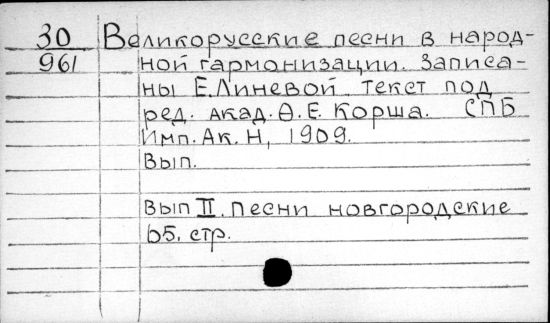 30 Великорусские песни в народ-
961 ной гармонизации. Записа-
ны Е. Линевой. Текст под
ред. акад. Ѳ. Е. Корша. СПБ
Имп. Ак. Н, 1909.
Вып.
Вып II. Песни новгородские
65. стр.